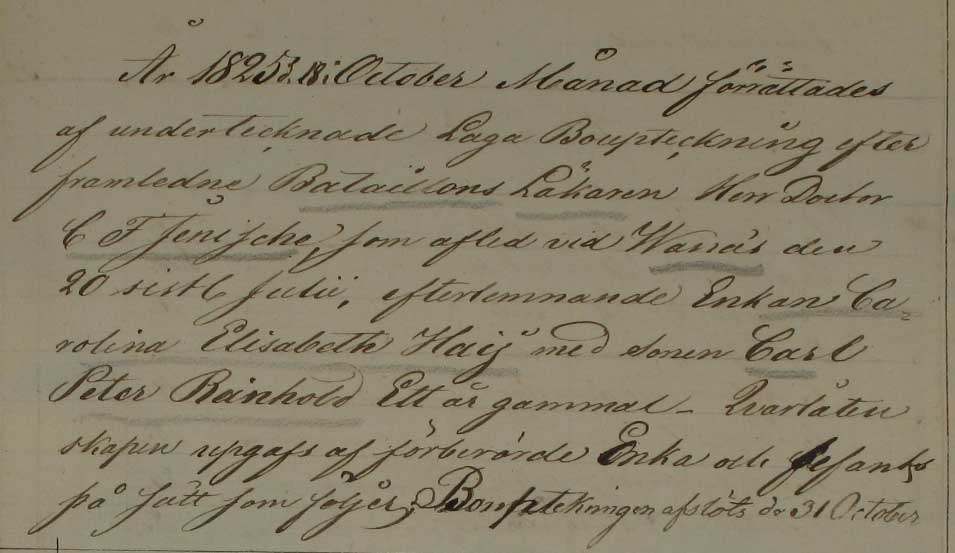 År 1825 d. 18 i October Månad förrättades
af undertecknade Laga Boupteckning efter
framledne Bataillons Läkaren Herr Doctor
C F Jenische, som afled vid Wanäs den
20 sistl. Julii, efterlemnande Enkan Ca=
rolina Elisabeth Haij med sonen Carl
Peter Reinhold Ett år gammal – Qvarlåten
skapen upgafs af förberörde Enka och
på sätt som följer; Bouptekningen afslöts d. 31 October